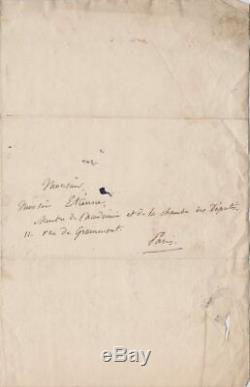 Monsieur,
Monsieur Etienne,
Membre de l'académie et de la chambre des Députés
11. rue de Grammont.
Paris.
ebay